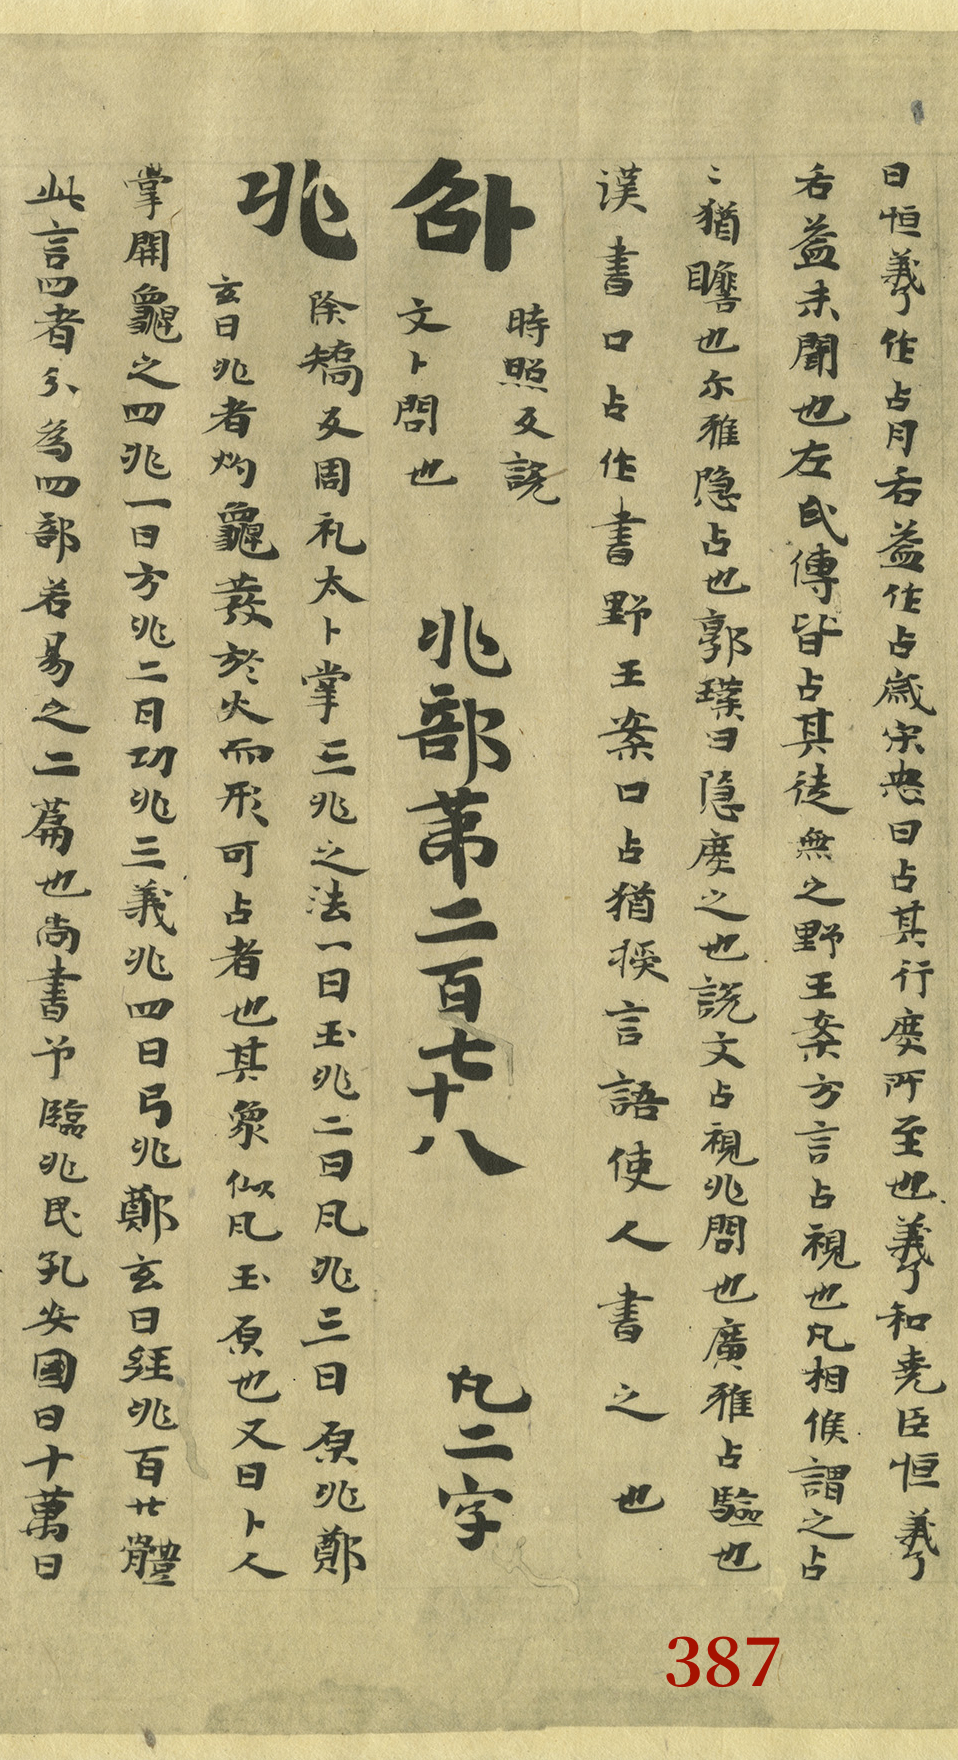 曰恒羲作占月后益作占歳宋忠曰占其行度所至也羲和堯臣恒羲
后益未聞也左氏傳皆占其徒無之野王案方言占視也凡相候謂之占
〻猶瞻也尓雅隠占也郭璞曰隠度之也說文占視兆問也廣雅占驗也
漢書口占作書野王案口占猶授言語使人書之也
卲
時照反說
文卜問也
兆部第二百七十八
凡二字
兆
除矯反周礼太卜掌三兆之法一曰玉兆二曰凡兆三曰原兆鄭
玄曰兆者灼龜發於火而形可占者也其象似凡玉原也又曰卜人
掌開龜之四兆一曰方兆二曰功兆三義兆四曰弓兆鄭玄曰經兆百廿體
此言四者分為四部若易之二篇也尚書予臨兆民孔安國曰十萬曰
387